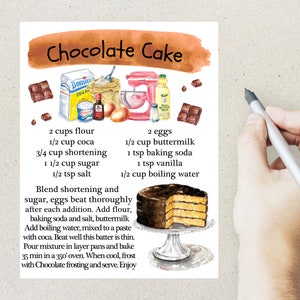 Chocolate Cake
Domino
SUGAR
2 cups flour
1/2 cup coca
3/4 cup shortening
1 1/2 cup sugar
1/2 tsp salt
2 eggs
1/2 cup buttermilk
1 tsp baking soda
1 tsp vanilla
1/2 cup boiling water
Blend shortening and
sugar, eggs beat thoroughly
after each addition. Add flour,
baking soda and salt, buttermilk
Add boiling water, mixed to a paste
with coca. Beat well this batter is thin.
Pour mixture in layer pans and bake
35 min in a 350° oven. When cool, frost
with Chocolate frosting and serve. Enjoy